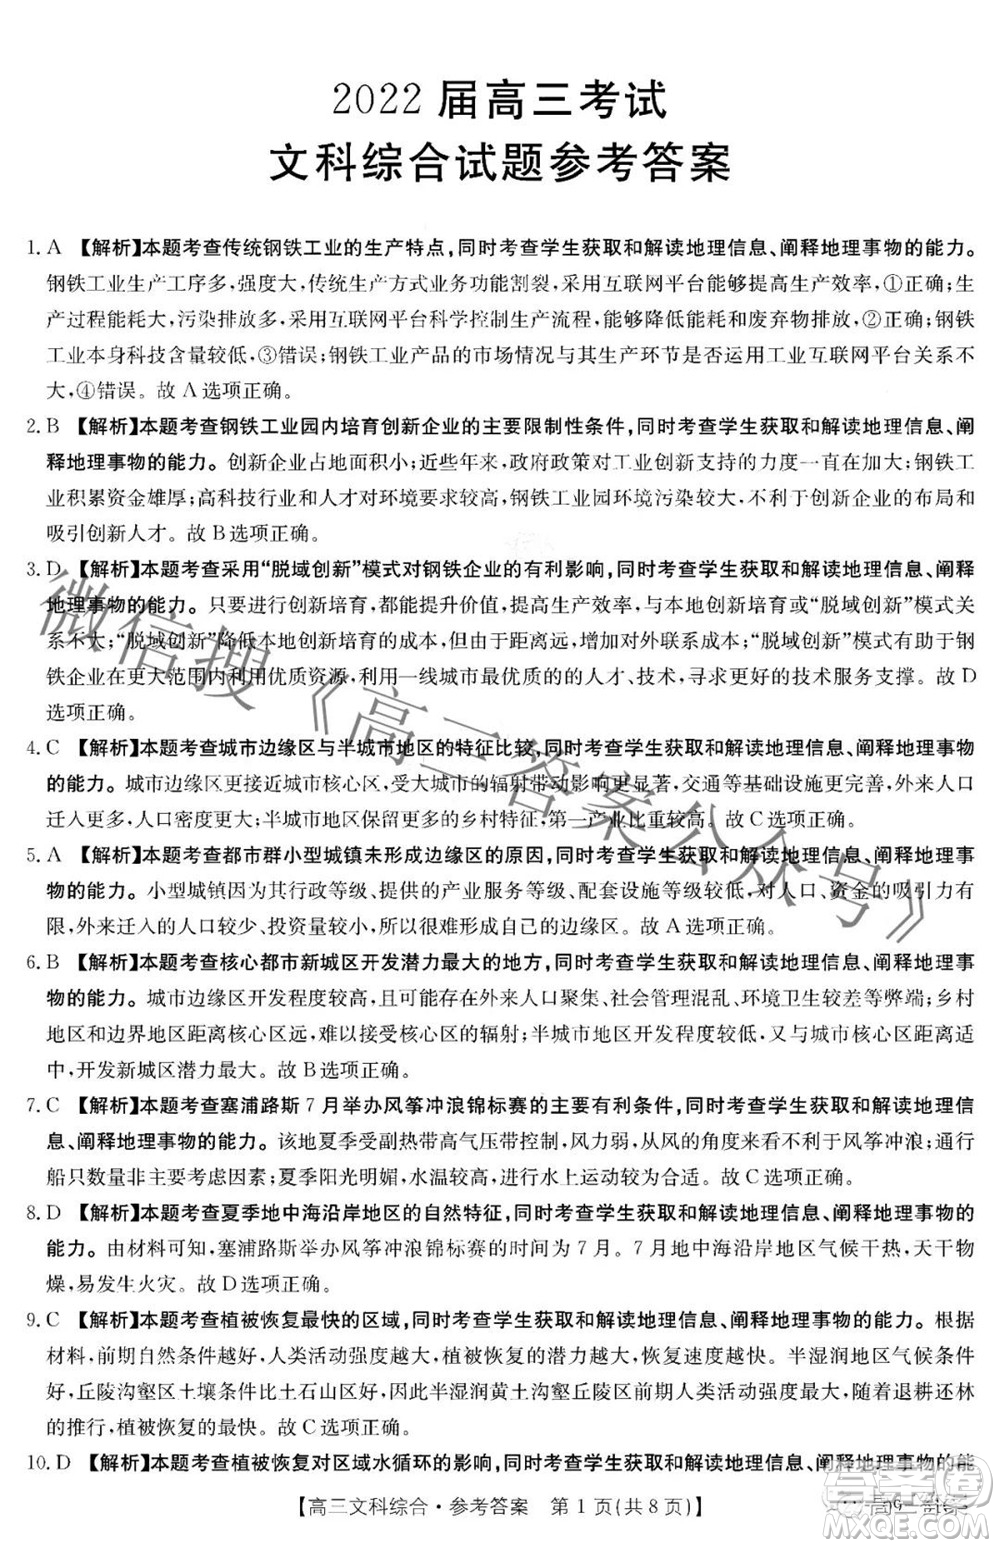 2022 届高三考试
文科综合试题参考答案
1. A 【解析】本题考查传统钢铁工业的生产特点,同时考查学生获取和解读地理信息、阐释地理事物的能力。
钢铁工业生产工序多,强度大,传统生产方式业务功能割裂,采用互联网平台能够提高生产效率,①正确;生
产过程能耗大,污染排放多,采用互联网平台科学控制生产流程,能够降低能耗和废弃物排放,②正确;钢铁
工业本身科技含量较低,③错误;钢铁工业产品的市场情况与其生产环节是否运用工业互联网平台关系不
大,④错误。故 A 选项正确。
2. B 【解析】本题考查钢铁工业园内培育创新企业的主要限制性条件,同时考查学生获取和解读地理信息、阐
释地理事物的能力。创新企业占地面积小;近些年来,政府政策对工业创新支持的力度一直在加大;钢铁工
业积累资金雄厚;高科技行业和人才对环境要求较高,钢铁工业园环境污染较大,不利于创新企业的成长和
吸引创新人才。故 B 选项正确。
3. D 【解析】本题考查采用“脱域创新”模式对钢铁企业的有利影响,同时考查学生获取和解读地理信息、阐释
地理事物的能力。只要进行创新培育,都能提升产业价值,提高生产效率,增加市场份额,与“脱域创新”模式关
系不大;“脱域创新”降低本地创新培育的成本,但会增加对外联系成本;“脱域创新”模式有助于钢
铁企业在更大范围内利用优质资源,利用一线城市最优质的的人才、技术,寻求更好的技术服务支撑。故 D
选项正确。
4. C 【解析】本题考查城市边缘区与半城市地区的特征比较,同时考查学生获取和解读地理信息、阐释地理事物
的能力。城市边缘区更接近城市核心区,受大城市的辐射带动影响更显著,交通等基础设施更好,外来人口
迁入更多,人口密度更大;半城市地区保留更多的乡村特征,第一产业比重较高。故 C 选项正确。
5. A 【解析】本题考查都市群小型城镇未形成边缘区的原因,同时考查学生获取和解读地理信息、阐释地理事
物的能力。小型城镇因为其行政等级、提供的产业服务等级、配套设施等级较低,对人口、资金的吸引力有
限,外来迁入的人口较少,投资量较小,很难形成自己的边缘区。故 A 选项正确。
6. B 【解析】本题考查核心都市新城区开发潜力最大的地方,同时考查学生获取和解读地理信息、阐释地理事
物的能力。城市边缘区开发程度较高,且容易出现外来人口聚集、社会管理混乱、环境卫生较差等弊端;乡村
地区和边界地区距离核心区远,难以接受核心城市的辐射;半城市地区开发程度不大,又与城市核心区不远,
开发新城区潜力最大。故 B 选项正确。
7. C 【解析】本题考查塞浦路斯 7 月举办风筝冲浪锦标赛的主要有利条件,同时考查学生获取和解读地理信
息、阐释地理事物的能力。该地夏季受副热带高气压带控制,风力弱,应是海陆风助力风筝冲浪;通行
船只数量并非主要考虑因素;夏季阳光明媚,水温较高,进行水上运动较为合适。故 C 选项正确。
8. D 【解析】本题考查夏季地中海沿岸地区的自然特征,同时考查学生获取和解读地理信息、阐释地理事物的
能力。由材料可知,塞浦路斯举办风筝冲浪锦标赛的时间为 7 月。7 月地中海沿岸地区气候干热,天干物
燥,易发生火灾。故 D 选项正确。
9. C 【解析】本题考查植被恢复最快的区域,同时考查学生获取和解读地理信息、阐释地理事物的能力。根据
材料,前期自然条件越好,人类活动干扰强度越大,植被恢复的潜力越大,恢复速度越快。半湿润地区气候条件
好,丘陵沟壑区土壤条件比土石山区好,因此半湿润黄土丘陵沟壑区人类活动干扰强度最大,随着退耕还林
的推行,植被恢复的最快。故 C 选项正确。
10. D 【解析】本题考查植被恢复对区域水循环的影响,同时考查学生获取和解读地理信息、阐释地理事物的能
【高三文科综合·参考答案 第 1 页(共 8 页)】
微信搜《高三答案公众号》